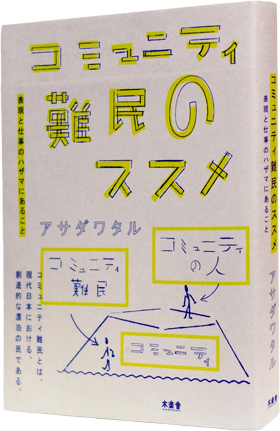 コミュニティ
難民の
ススメ
表現と仕事のハザマにあること
アサダワタル
コミュニティ
の人
コミュニティ
難民
コミュニティ
コミュニティ難民とは、
現代日本における、
創造的な漂泊の民である。
木楽舎
コミュニティ難民のススメ
表現と仕事のハザマにあること
アサダワタル
木楽舎